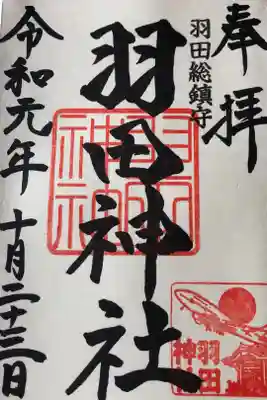 奉拝
羽田総鎮守
羽田神社
羽田神社
令和元年十月二十三日
羽田神社